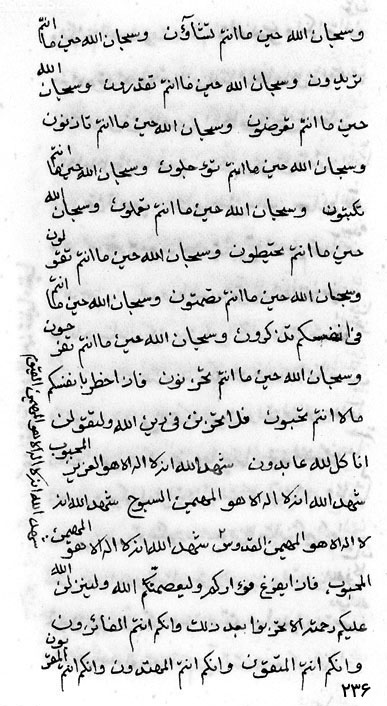 وسبحان الله حين ما انتم تشاؤن وسبحان الله حين ما انتم
تريدون وسبحان الله حين ما انتم تقدرون وسبحان الله
حين ما انتم تعرضون وسبحان الله حين ما انتم تاذنون
وسبحان الله حين ما انتم تؤجلون وسبحان الله حين ما انتم
تكتبون وسبحان الله حين ما انتم تعملون وسبحان الله
حين ما انتم تحيطون وسبحان الله حين ما انتم تقولون
وسبحان الله حين ما انتم تصمتون وسبحان الله حين ما انتم
في انفسكم تذكرون وسبحان الله حين ما انتم تفرحون
وسبحان الله حين ما انتم تحزنون فان اخطر بانفسكم
ما لا انتم تحبون قل الحزن في دين الله وليقولن
انا كل لله عابدون شهد الله انه لا اله الا هو العزيز المحبوب
شهد الله انه لا اله الا هو المهيمن السبوح شهد الله انه
لا اله الا هو المهيمن القدوس شهد الله انه لا اله الا هو المهيمن
المحبوب فان يفرغ فؤادكم وليعصمنكم الله ولينزلن الله
عليكم رحمته الا تحزنوا بعد ذلك وانكم انتم الفائزون
وانكم انتم المتقون وانكم انتم المهتدون وانكم انتم المقربون
شهد الله انه لا اله الا هو المهيمن القيوم
٢٣۶